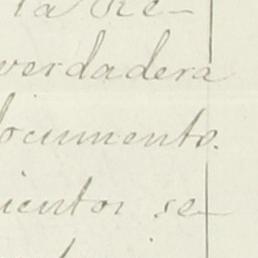 la Re-
verdadera
documento.
ientos se-